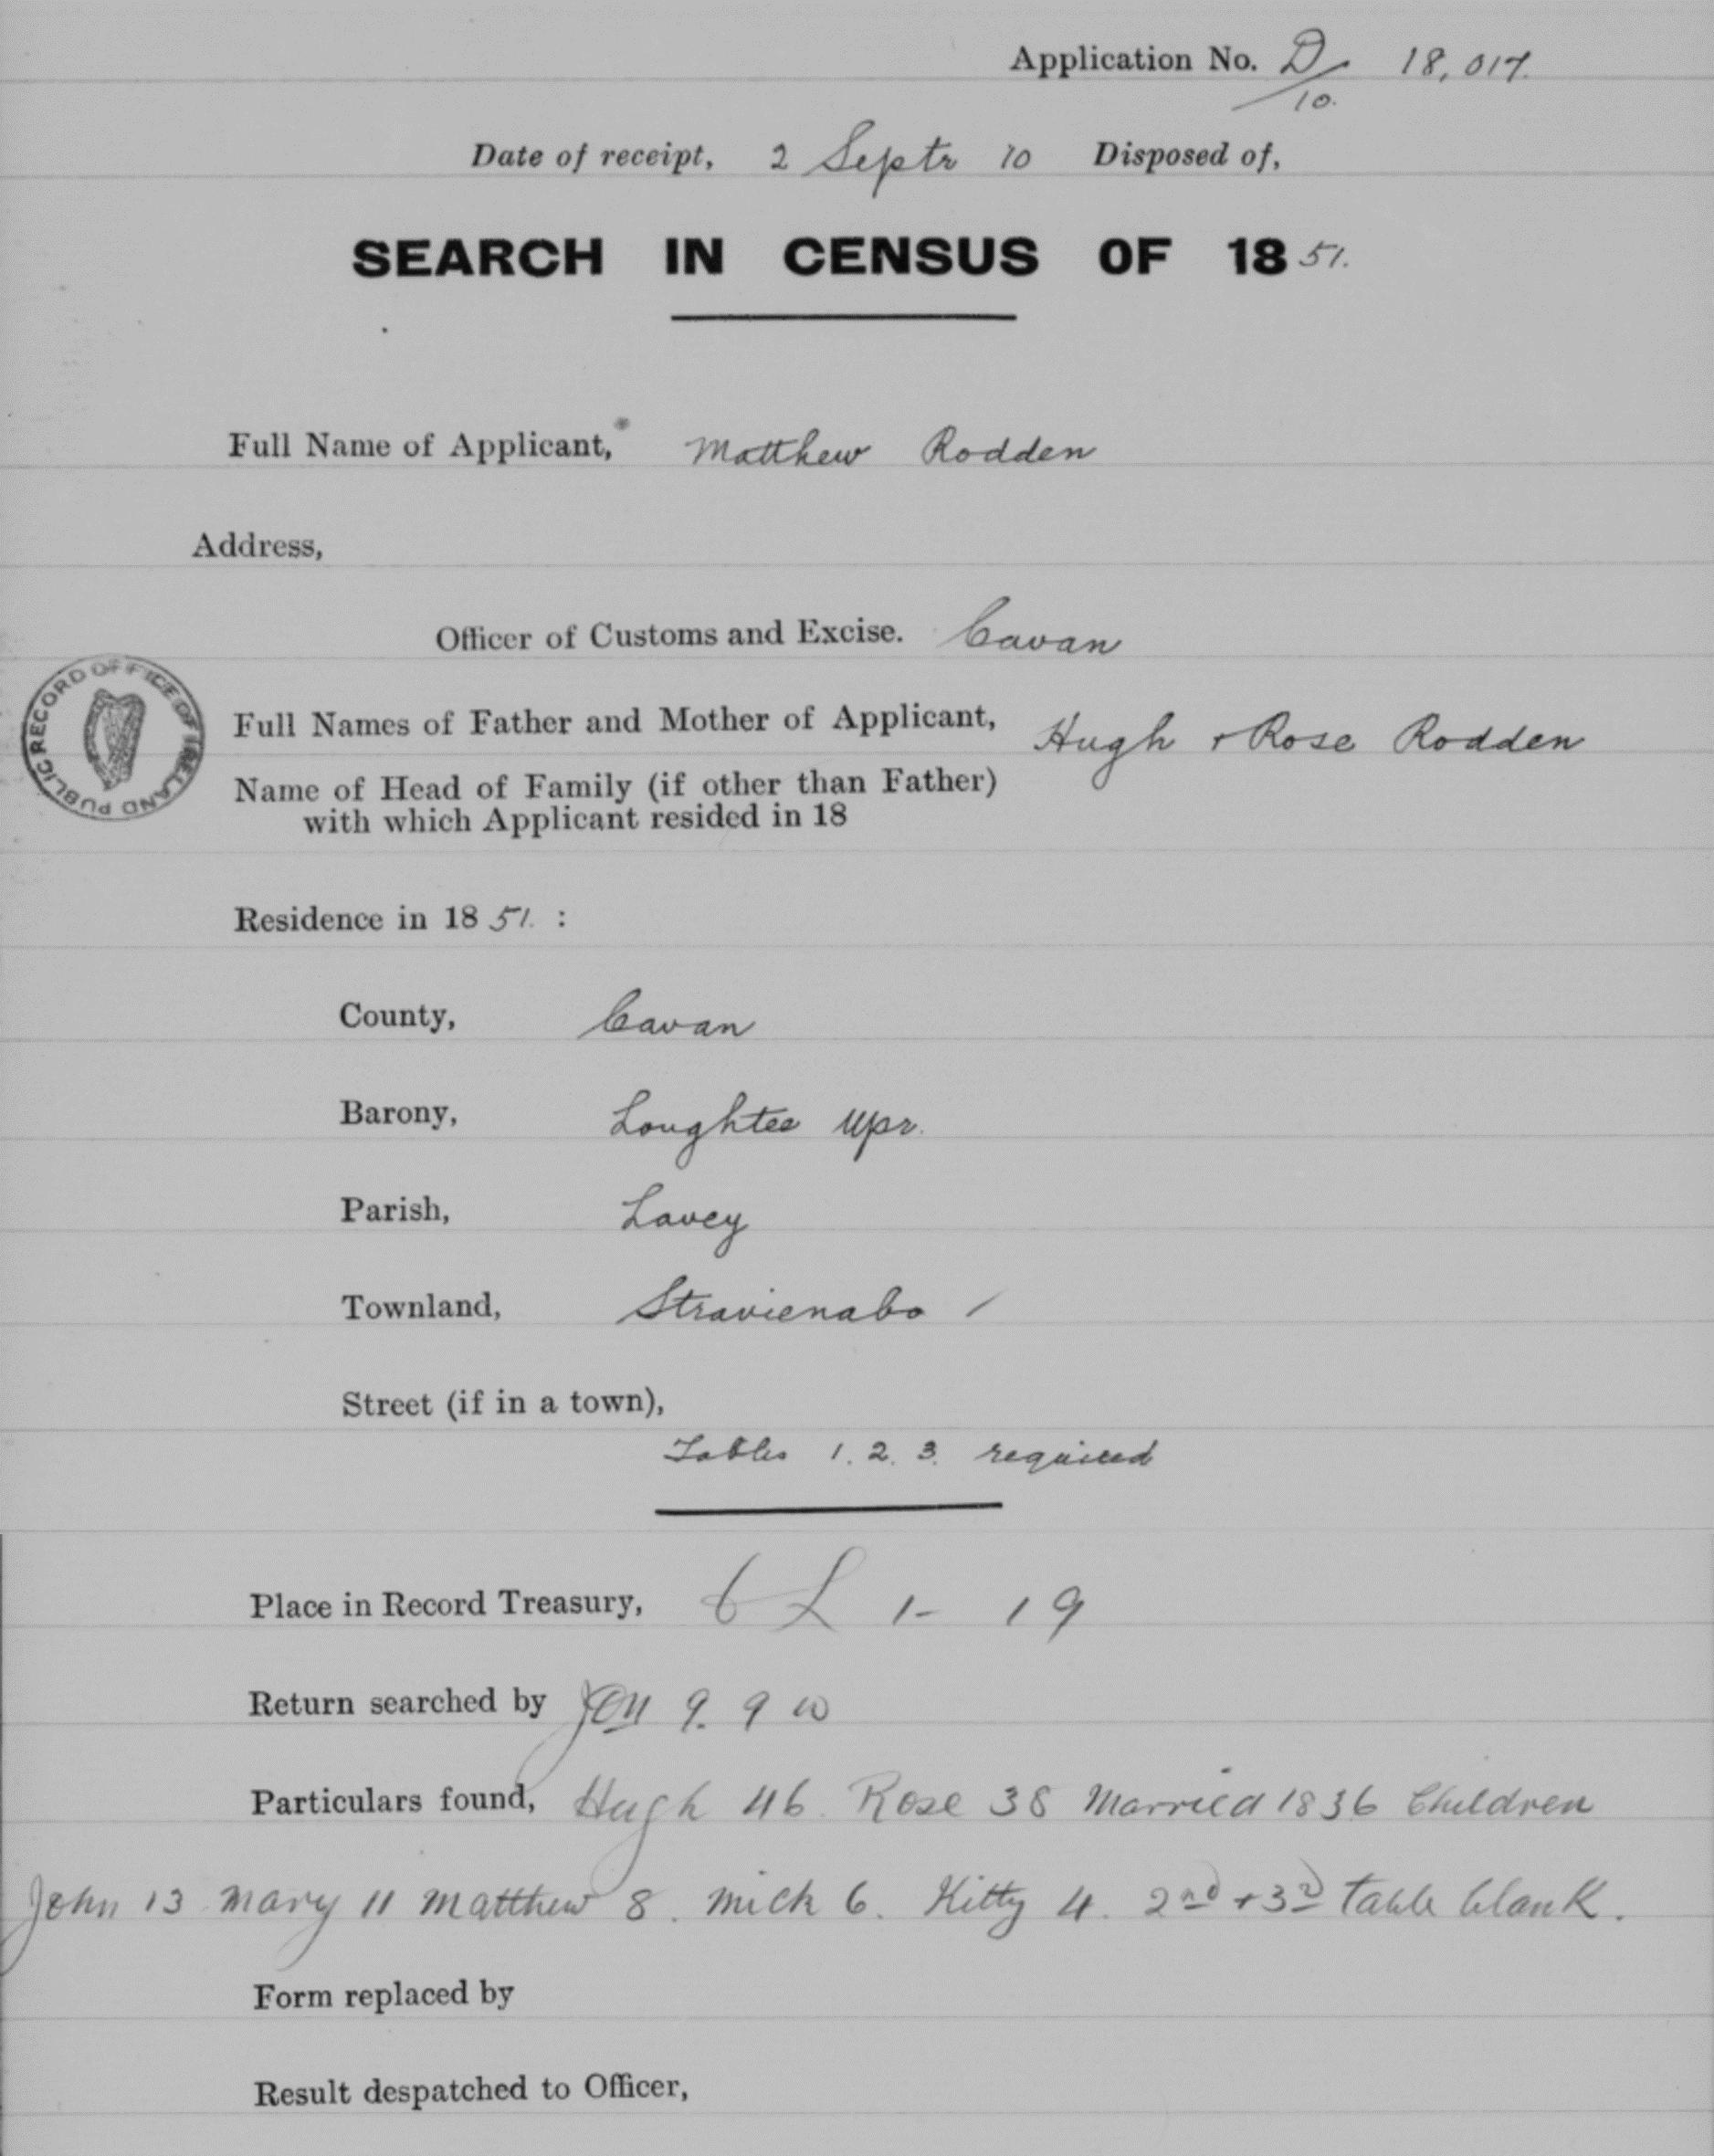 Application No. D/10. 18,017.
Date of receipt, 2 Septr 10 Disposed of,
SEARCH IN CENSUS OF 1851.
Full Name of Applicant, Matthew Rodden
Address,
Officer of Customs and Excise. Cavan
PUBLIC RECORD OFFICE OF IRELAND
Full Names of Father and Mother of Applicant, Hugh + Rose Rodden
Name of Head of Family (if other than Father)
with which Applicant resided in 18
Residence in 1851. :
County, Cavan
Barony, Loughtee Upr.
Parish, Lavey
Townland, Stravicnabo /
Street (if in a town),
Tables 1. 2. 3. required
Place in Record Treasury, 6 L 1- 19
Return searched by 9. 9 10
Particulars found, Hugh 46. Rose 38 Married 1836 Children
John 13 Mary 11 Matthew 8. Mick 6. Kitty 4. 2nd + 3d table blank.
Form replaced by
Result despatched to Officer,